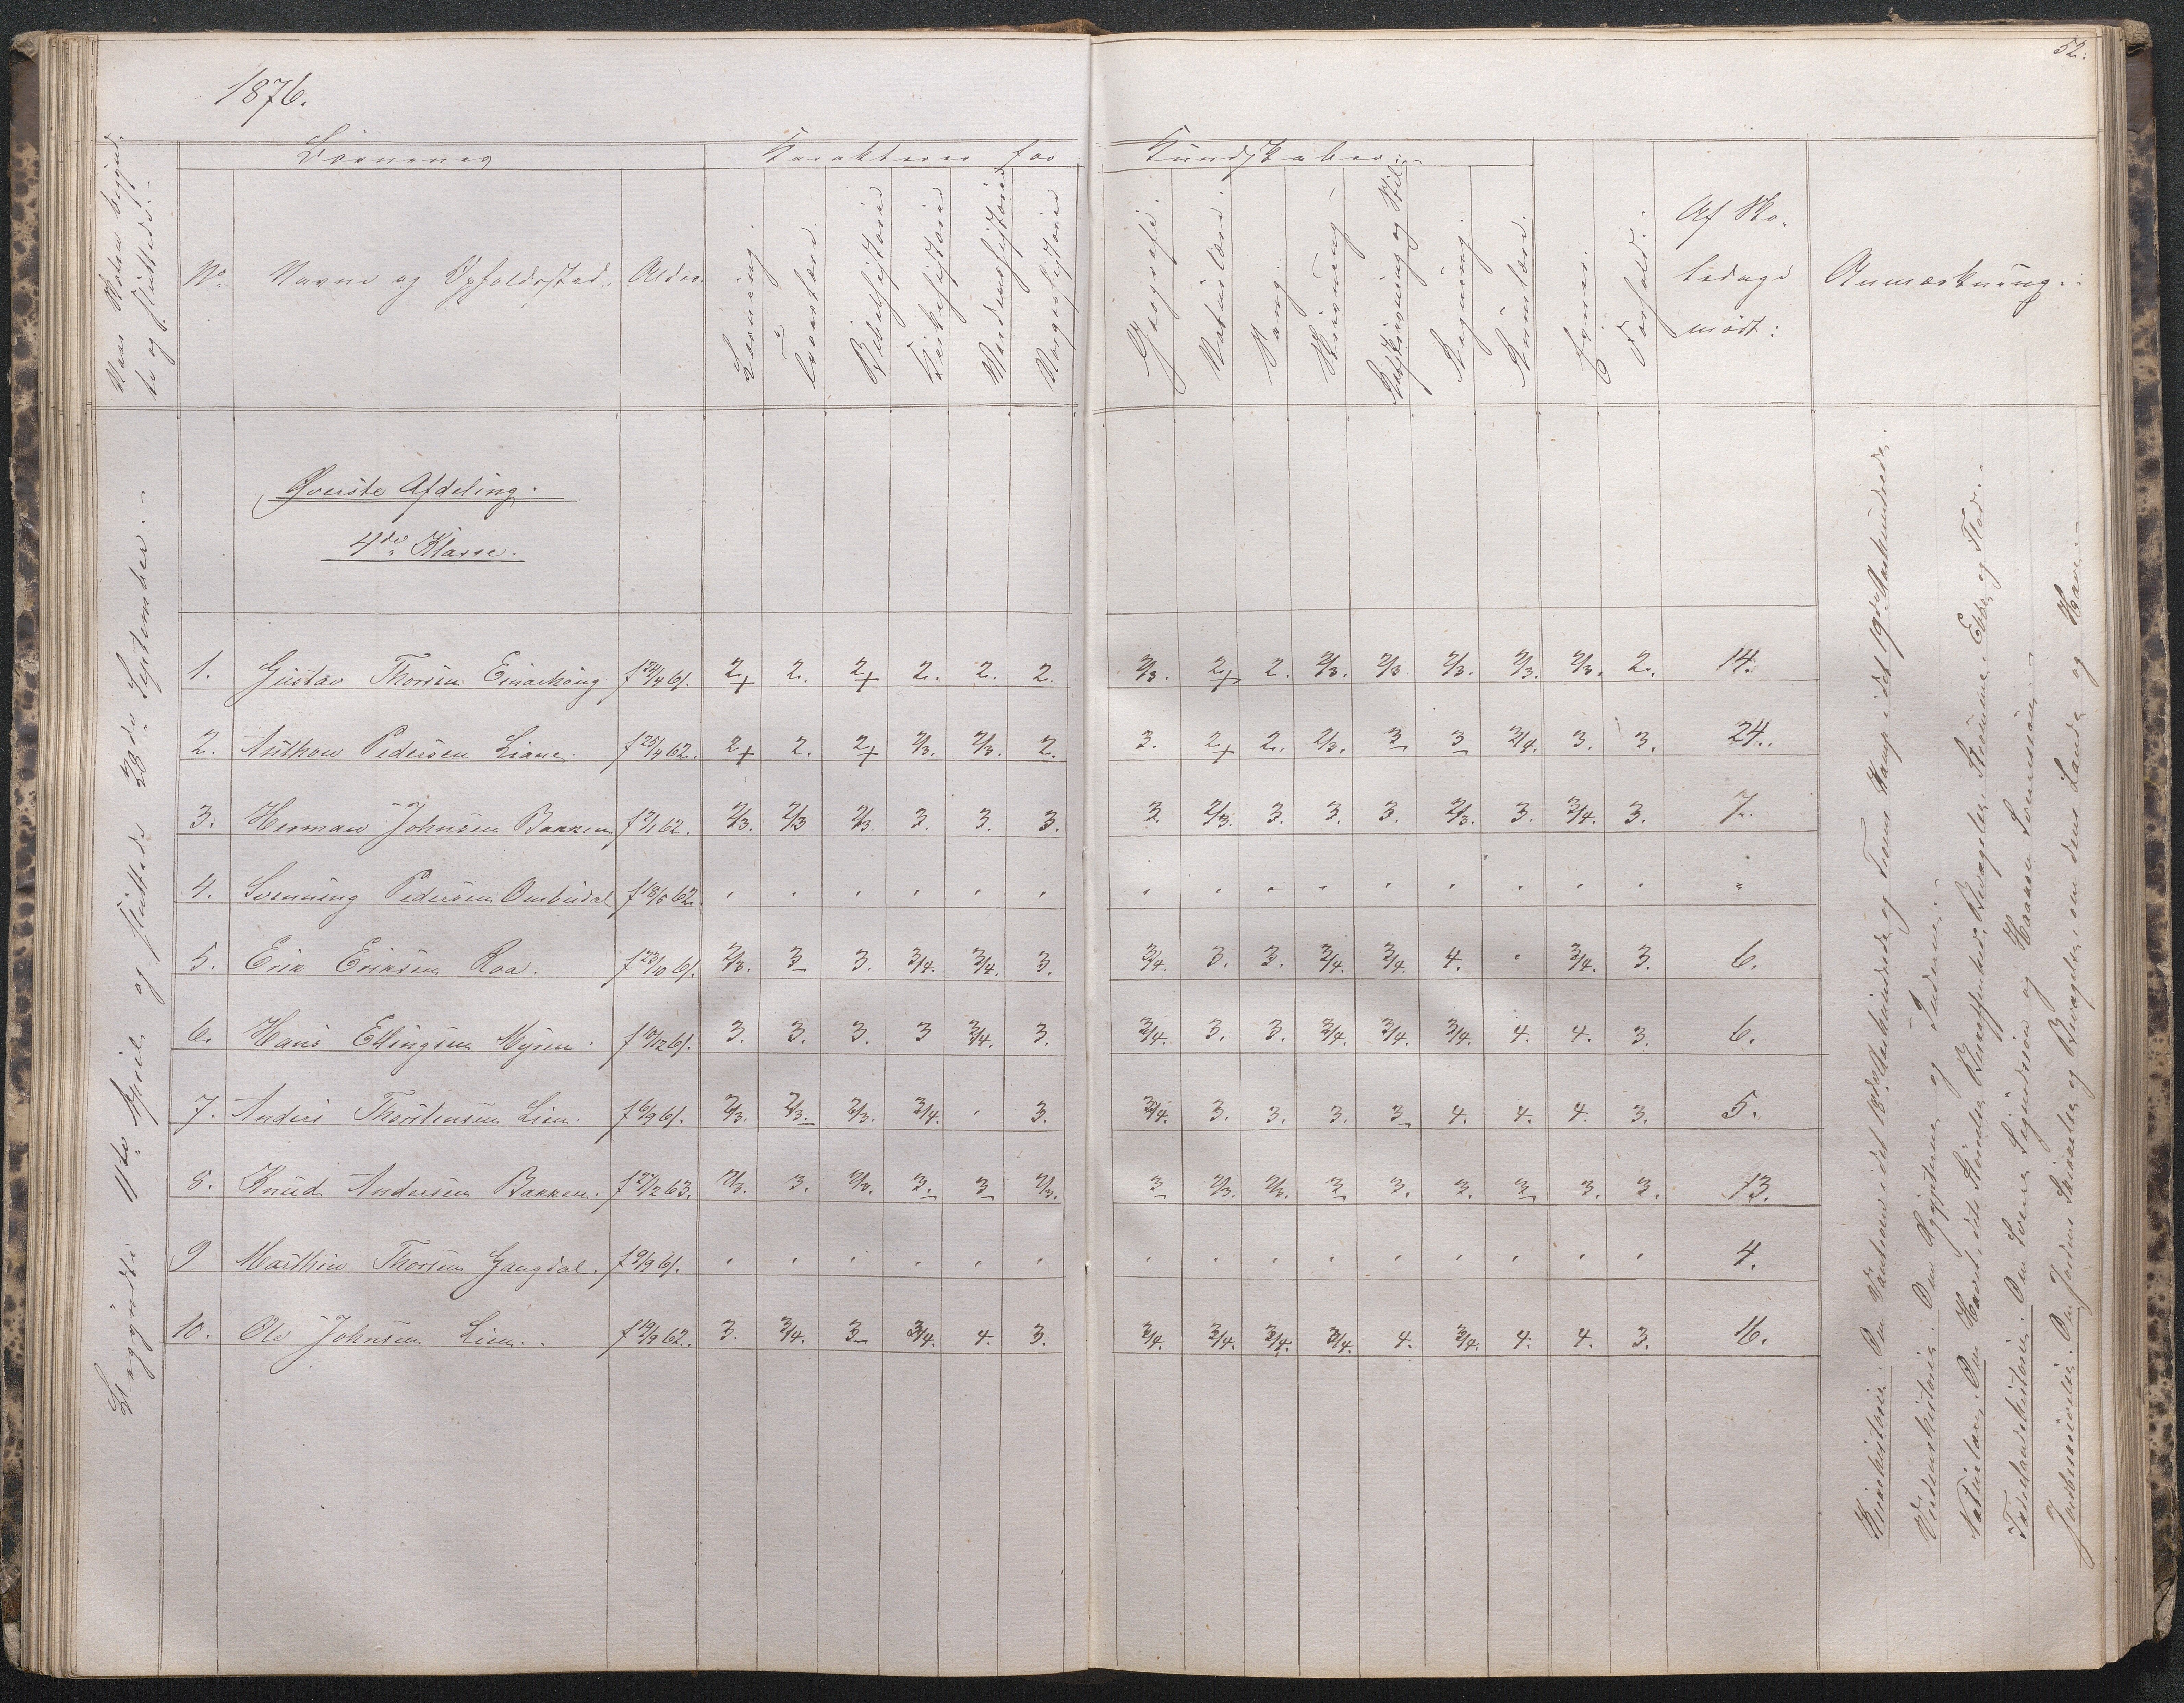 52.
1876.
Naar Skolen begynd-
te og sluttede.
Børnenes
Karakterer for
Kundskaber.
No.
Navne og Opholdssted.
Alder.
Læsning.
Troeslære.
Bibelhistorie
Kirkehistorie
Verdenshistorie
Norgeshistorie
Geografi.
Naturlære.
Sang.
Skrivning
Retskrivning og Stil
Regning.
Formlære.
Evner.
Forhold.
Af Sko-
ledage
mödt:
Anmærkning.
Øverste Afdeling.
4de Klasse.
Begyndte 11te April og sluttede 28de September.
1. Gustav Thorsen Einarhoug f 24/4 61. 2+ 2. 2+ 2. 2. 2. 2/3. 2+ 2. 2/3. 2/3. 2/3. 2/3. 2/3. 2. 14.
2. Anthon Pedersen Liane. f 25/4 62. 2+ 2. 2+ 2/3. 2/3. 2. 3. 2+ 2. 2/3. 3 3 3/4. 3. 3. 24.
3. Herman Johnsen Bakken f 2/1 62. 2/3. 2/3 2/3 3. 3. 3. 3. 2/3. 3. 3. 3. 2/3. 3. 3/4. 3. 7.
4. Svenning Pedersen Ombudal f 18/5 62 " " " " " " " " " " " " " " " "
5. Erik Eriksen Roa. f 23/10 61. 2/3. 3 3. 3/4. 3/4. 3. 3/4. 3. 3. 3/4. 3/4. 4. " 3/4. 3. 6.
6. Hans Ellingsen Myren. f 10/12 61. 3. 3. 3. 3 3/4. 3. 3/4. 3. 3. 3/4. 3/4. 3/4. 4. 4. 3. 6.
7. Anders Thorstensen Lien. f 6/9 61. 2/3. 2/3. 2/3. 3/4. " 3. 3/4. 3. 3. 3. 3 4. 4. 4. 3. 5.
8. Knud Andersen Bakken. f 27/2 63. 2/3. 3. 2/3. 3. 3 2/3. 3 2/3. 2/3. 3 3. 3. 3 3. 3. 13.
9 Marthin Thorsen Gangdal. f 9/9 61. " " " " " " " " " " " " " " " 4.
10. Ole Johnsen Lien. f 19/9 62. 3. 3/4. 3 3/4. 4. 3. 3/4. 3/4. 3/4. 3/4. 4. 3/4. 4. 4. 3. 16.
Kirkehistorie. Om Vantroen i det 18de Aarhundrede og Troens Kamp i det 19de Aarhundrede.
Verdenshistorie. Om Ægypterne og Inderne.
Naturlære. Om Havet, dets Bevægelser, Strømme, Ebbe og Flod.
Fædrelandshistorie. Om Sverre Sigurdssøn og Haakon Sverressøn.
Jordbeskrivelse. Om Jordens Skikkelse og Bevægelse, om dens Lande og Have.